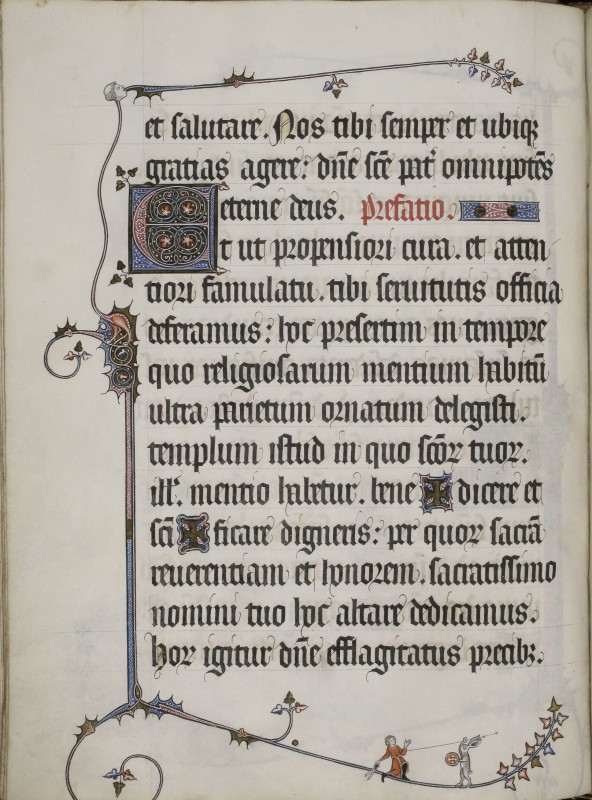 et salutare. Nos tibi semper et ubiq;
gratias agere: dn̄e sc̄e pat̄ omnipotēs
eterne deus. Prefatio.
Et ut propensiori cura. et atten
tiori famulatu. tibi seruitutis officia
deferamus: hoc presertim in tempore
quo religiosarum mentium habitū
ultra parietum ornatum delegisti.
templum istud in quo sc̄oꝝ tuoꝝ.
ill'. mentio habetur. bene ✠ dicere et
sc̄i ✠ ficare digneris: per quoꝝ sacrā
reuerentiam et honorem. sacratissimo
nomini tuo hoc altare dedicamus.
Hoꝝ igitur dn̄e efflagitatus precibꝫ.